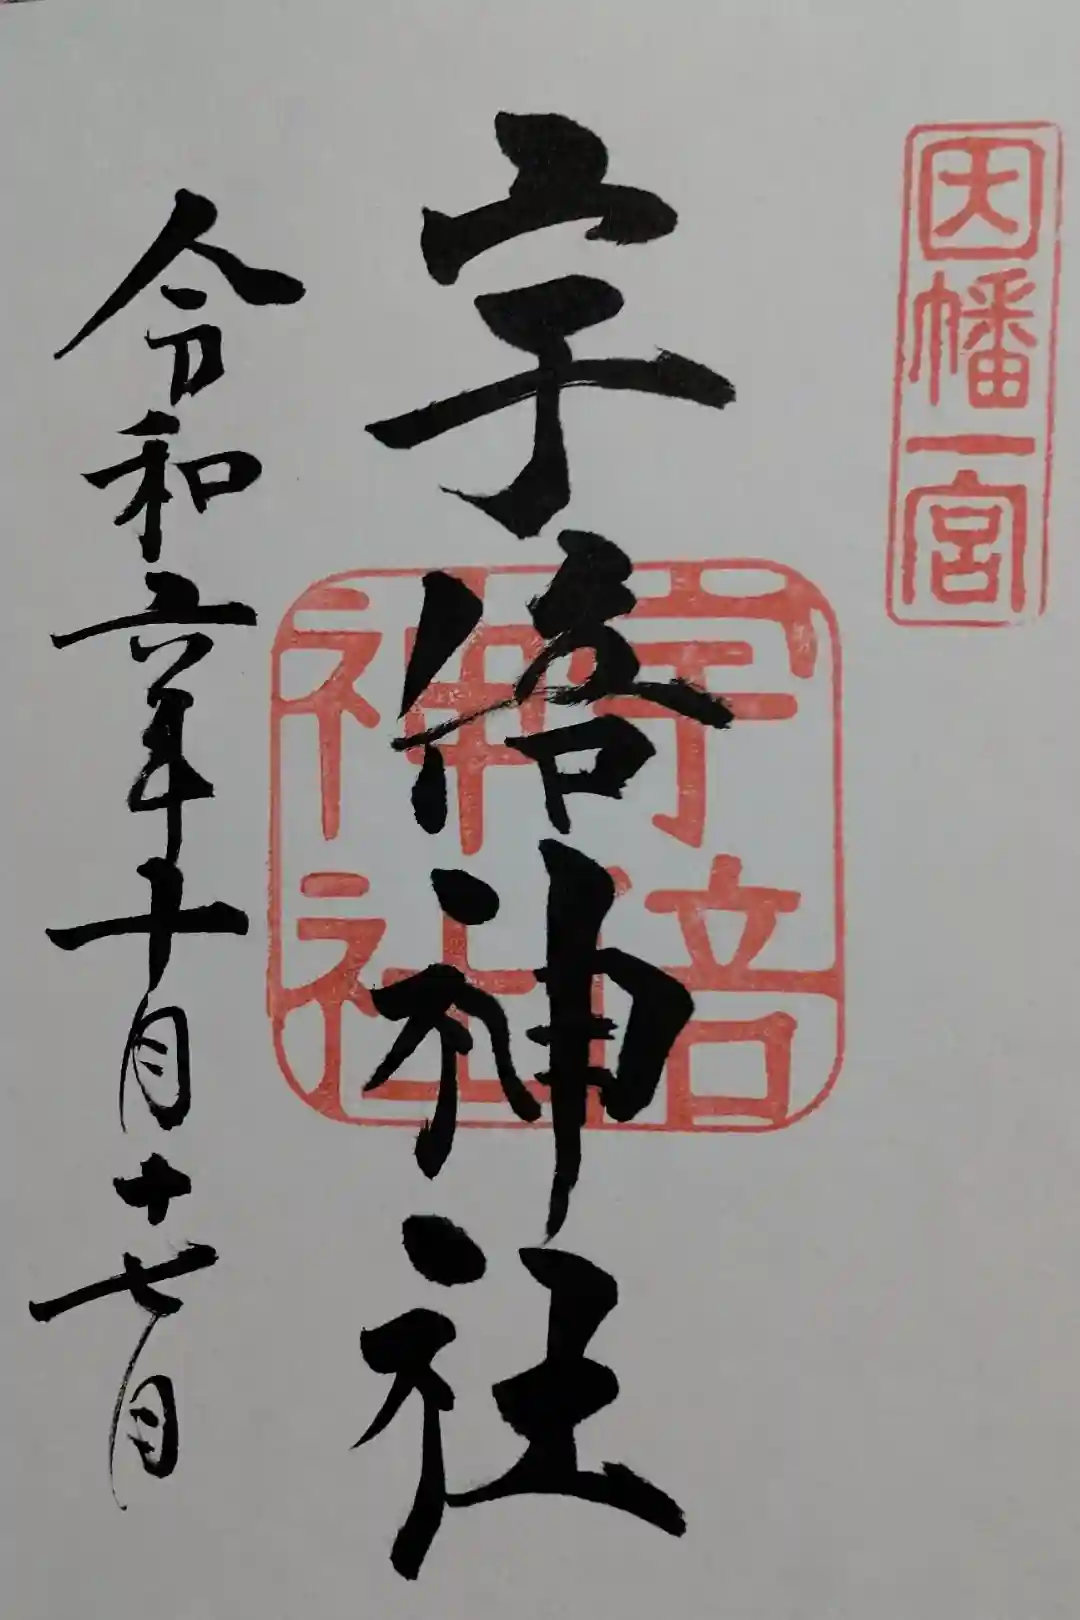 因幡一宮
宇倍神社
宇倍
神社
令和六年十月十七日